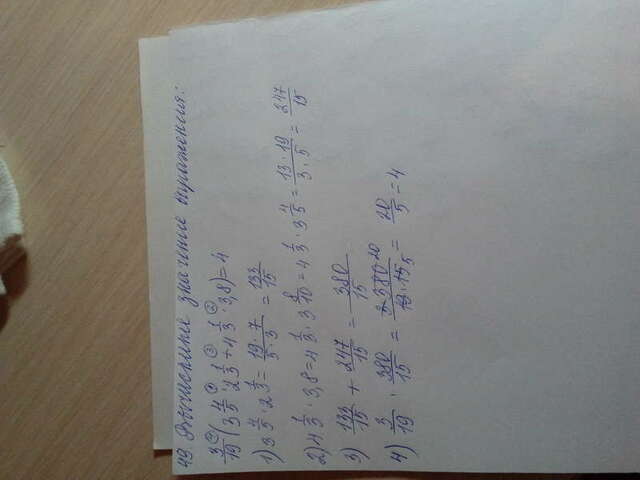 49. Вычислите значение выражения:
3/19 (3 4/5 · 2 1/3 + 4 1/3 · 3,8) = 4
1) 3 4/5 · 2 1/3 = 19·7/5·3 = 133/15
2) 4 1/3 · 3,8 = 4 1/3 · 3 8/10 = 4 1/3 · 3 4/5 = 13·19/3·5 = 247/15
3) 133/15 + 247/15 = 380/15
4) 3/19 · 380/15 = 3·380 20/19·15 5 = 20/5 = 4